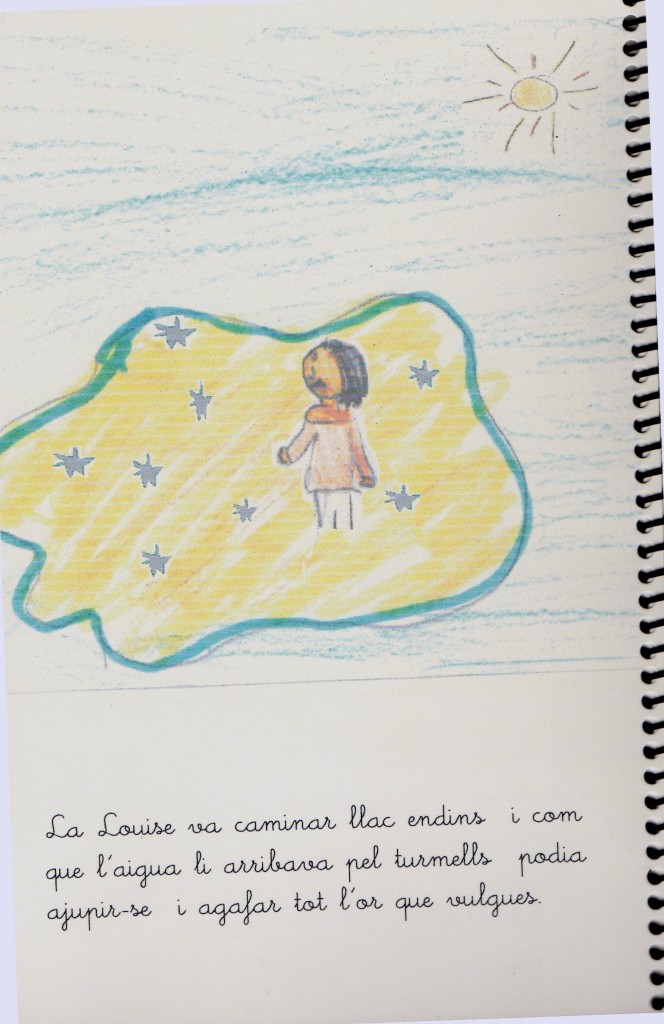 La Louise va caminar llac endins i com
que l'aigua li arribava pel turmells podia
ajupir-se i agafar tot l'or que vulgues.